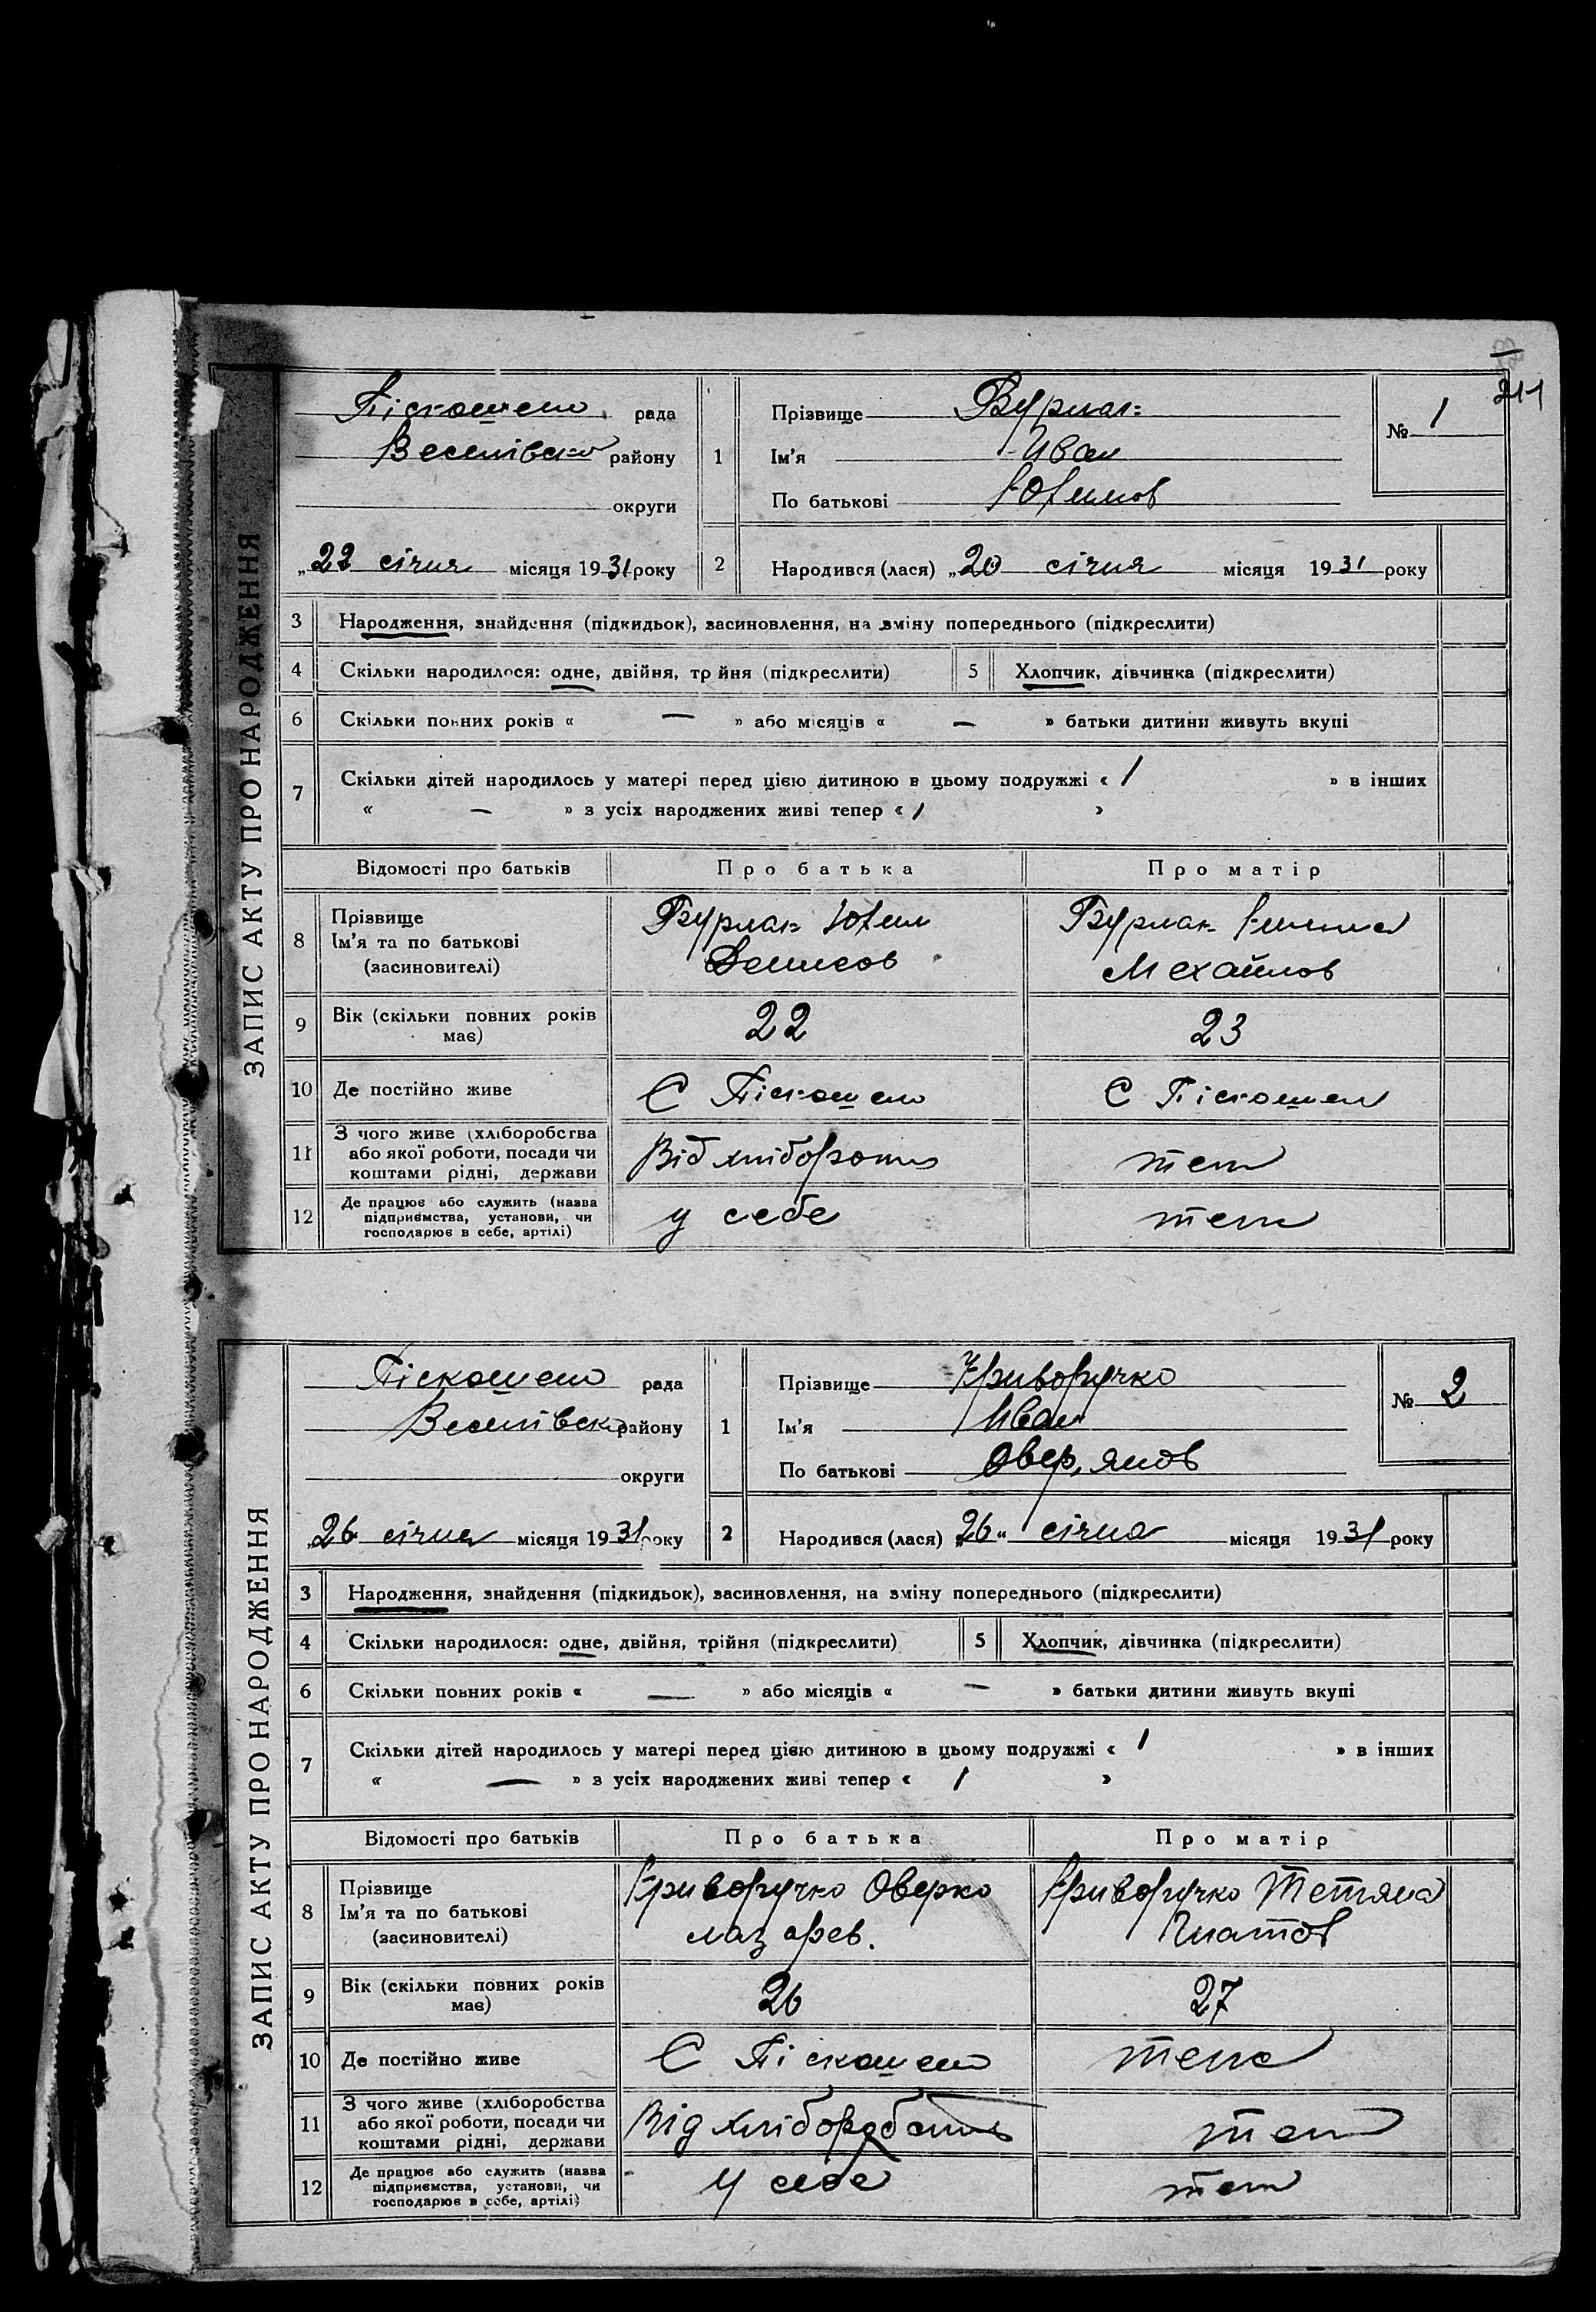 211
ЗАПИС АКТУ ПРО НАРОДЖЕННЯ
Піскошено рада
Веселівсько району
округи
„22 січня місяця 1931 року
1
Прізвище Бурлак
Ім'я Иван
По батькові Юхимов
№ 1
2 Народився (лася) „20 січня місяця 1931 року
3 Народження, знайдення (підкидьок), засиновлення, на зміну попереднього (підкреслити)
4 Скільки народилося: одне, двійня, тр йня (підкреслити) 5 Хлопчик, дівчинка (підкреслити)
6 Скільки повних років « — » або місяців « — » батьки дитини живуть вкупі
7 Скільки дітей народилось у матері перед цією дитиною в цьому подружжі « 1 » в інших
« — » з усіх народжених живі тепер « 1 »
Відомості про батьків Про батька Про матір
8 Прізвище
Ім'я та по батькові
(засиновителі)
Бурлак Юхим
Денисов
Бурлак
Мехайлов
9 Вік (скільки повних років
має)
22 23
10 Де постійно живе С Піскошено С Піскошен
11 З чого живе (хліборобства
або якої роботи, посади чи
коштами рідні, держави
Від теж
12 Де працює або служить (назва
підприємства, установи, чи
господарює в себе, артілі)
у себе теж
ЗАПИС АКТУ ПРО НАРОДЖЕННЯ
Піскошено рада
Веселівсько району
округи
„26 січня місяця 1931 року
1
Прізвище Криворучко
Ім'я Иван
По батькові Овер,янов
№ 2
2 Народився (лася) „26" січня місяця 1931 року
3 Народження, знайдення (підкидьок), засиновлення, на зміну попереднього (підкреслити)
4 Скільки народилося: одне, двійня, трійня (підкреслити) 5 Хлопчик, дівчинка (підкреслити)
6 Скільки повних років « — » або місяців « — » батьки дитини живуть вкупі
7 Скільки дітей народилось у матері перед цією дитиною в цьому подружжі « 1 » в інших
« — » з усіх народжених живі тепер « 1 »
Відомості про батьків Про батька Про матір
8 Прізвище
Ім'я та по батькові
(засиновителі)
Криворучко Оверко
лазарев.
Криворучко Тетяна
Гнатов
9 Вік (скільки повних років
має)
26 27
10 Де постійно живе С Піскошено теж
11 З чого живе (хліборобства
або якої роботи, посади чи
коштами рідні, держави
Від теж
12 Де працює або служить (назва
підприємства, установи, чи
господарює в себе, артілі)
у себе теж